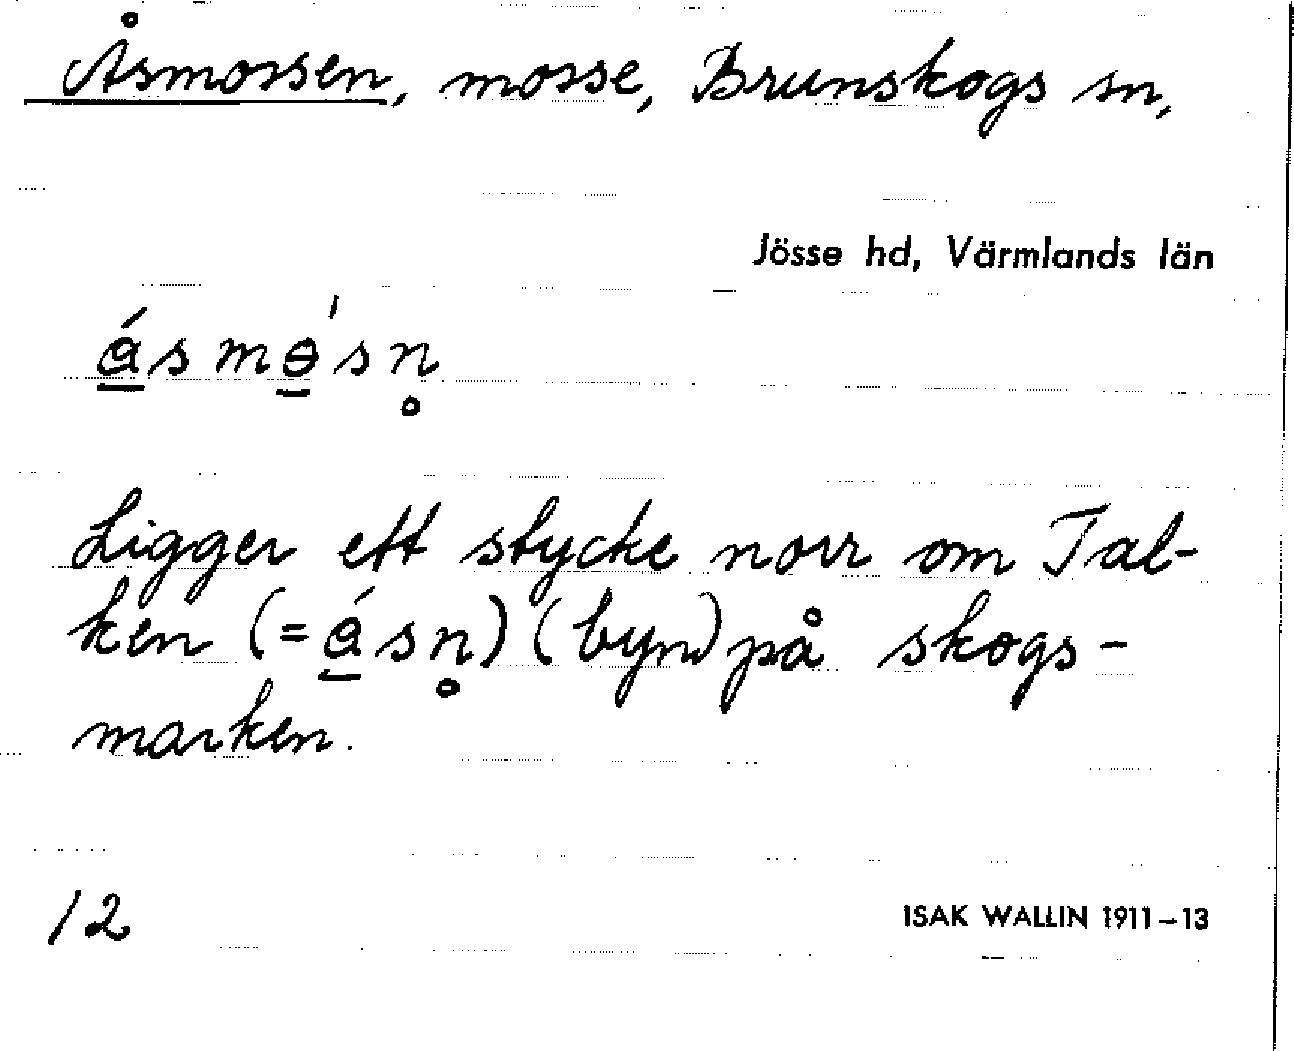 Åsmossen, mosse, Brunskogs sn,
Jösse hd, Värmlands län
ligger ett stycke norr om Tal-
ken (= ) (byn) på skogs-
marken.
12
ISAK WALLIN 1911–13